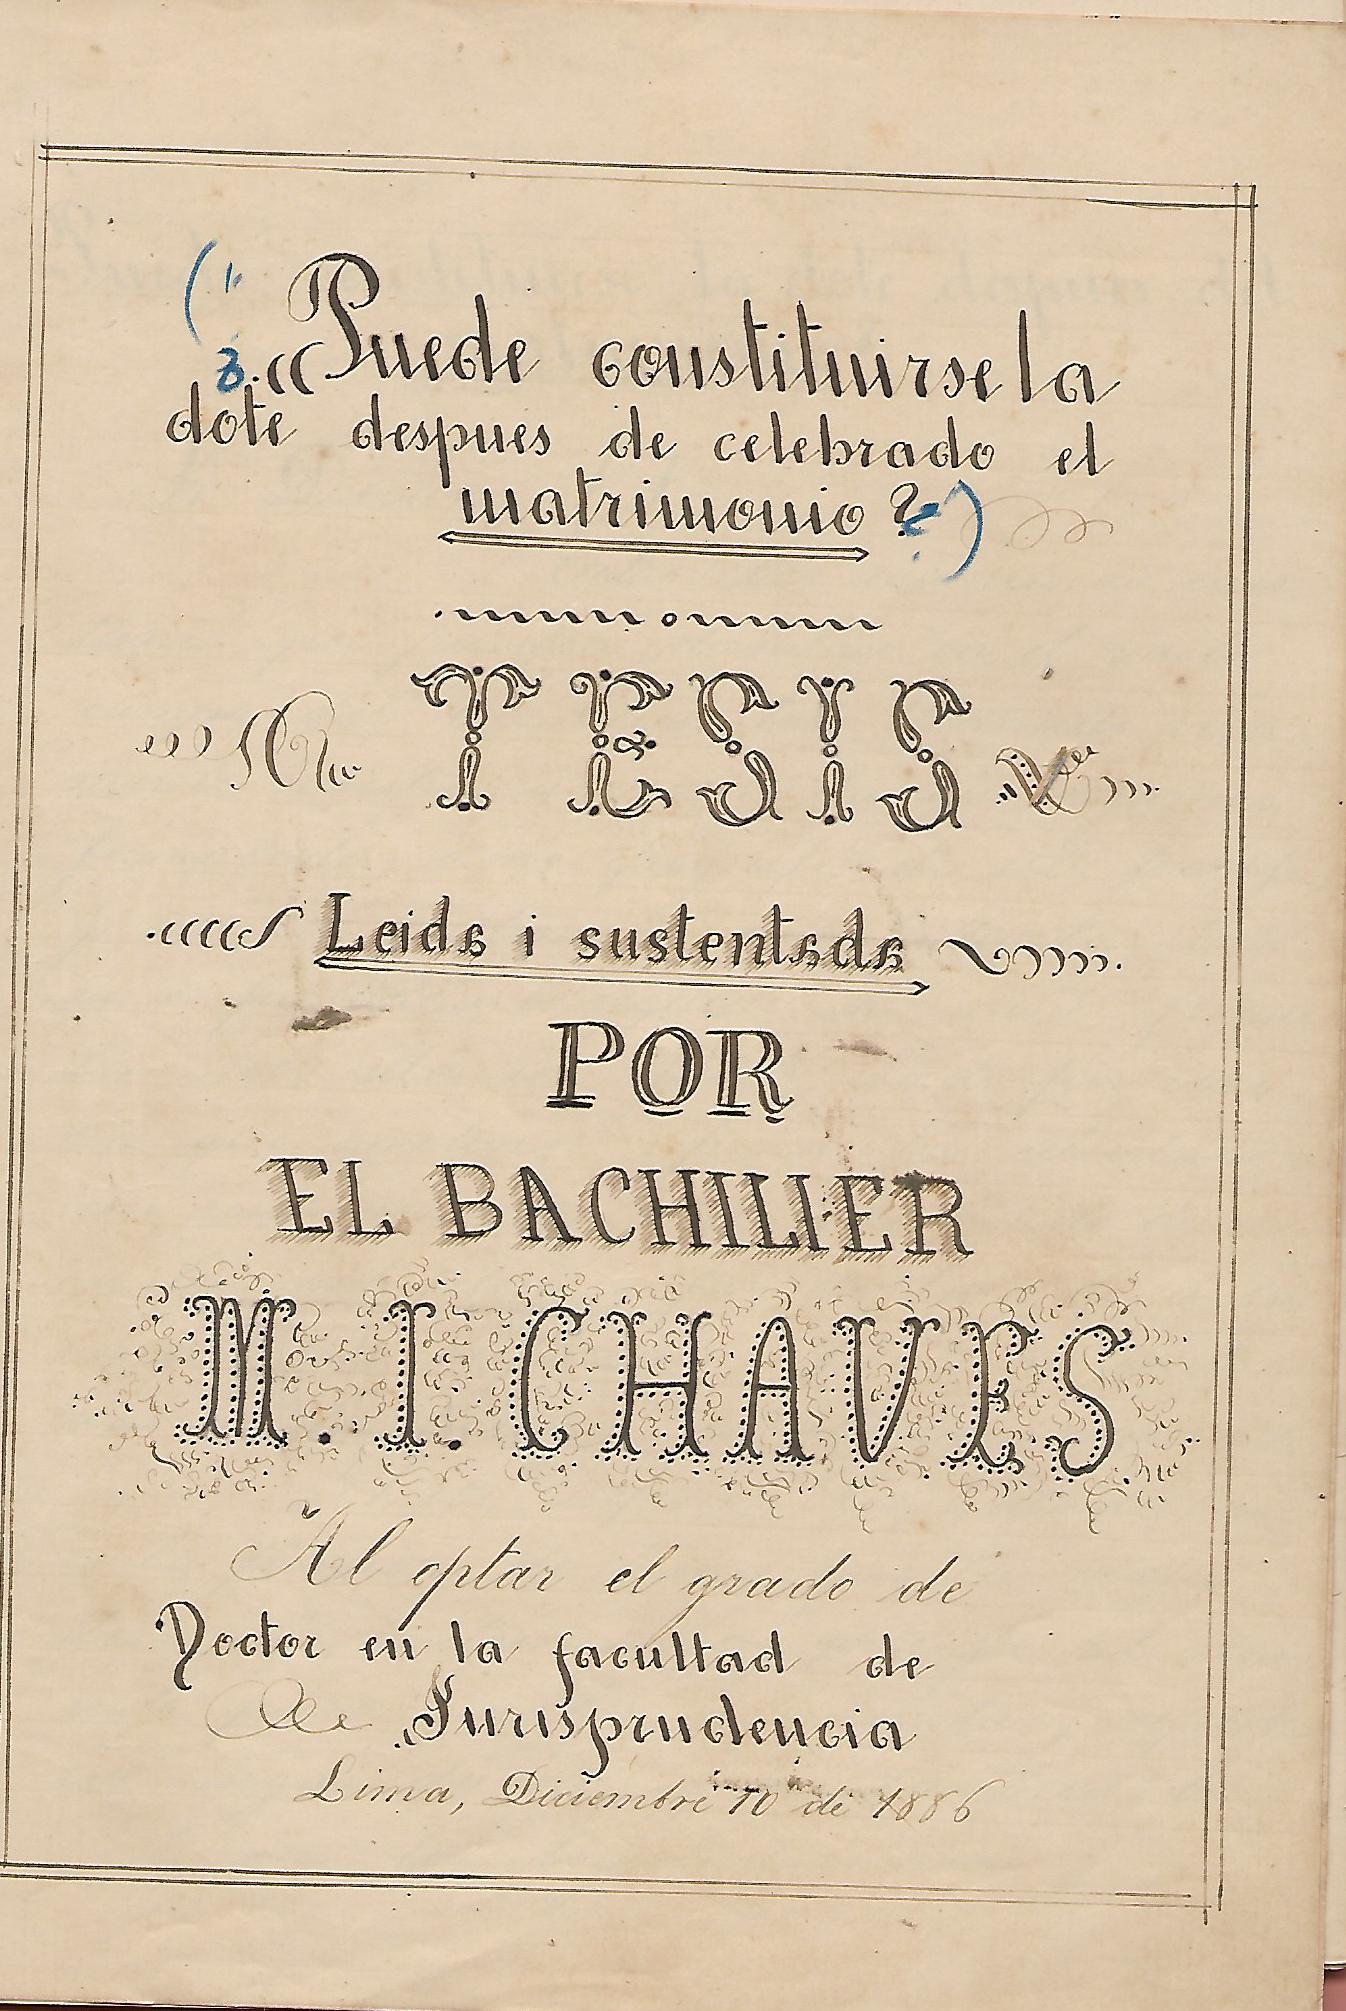 ¿Puede constituirse la
dote despues de celebrado el
matrimonio?
TESIS
Leida i sustentada
POR
EL BACHILLER
M. I. CHAVES
Al optar el grado de
Doctor en la facultad de
Jurisprudencia
Lima, Diciembre 10 de 1886